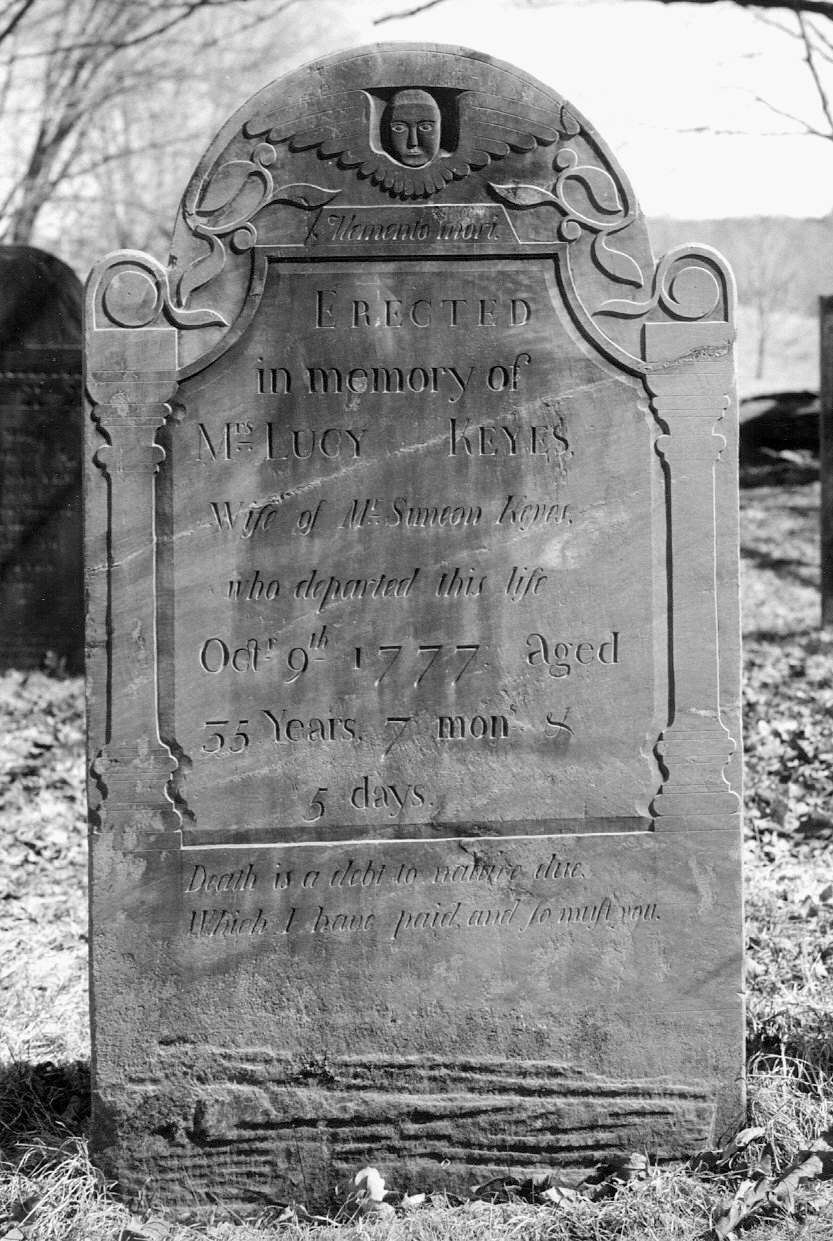 Memento mori.
ERECTED
in memory of
Mrs LUCY KEYES,
Wife of Mr Simeon Keyes,
who departed this life
Octr 9th 1777. aged
35 Years, 7 mons &
5 days.
Death is a debt to nature due,
Which I have paid, and ſo muſt you.